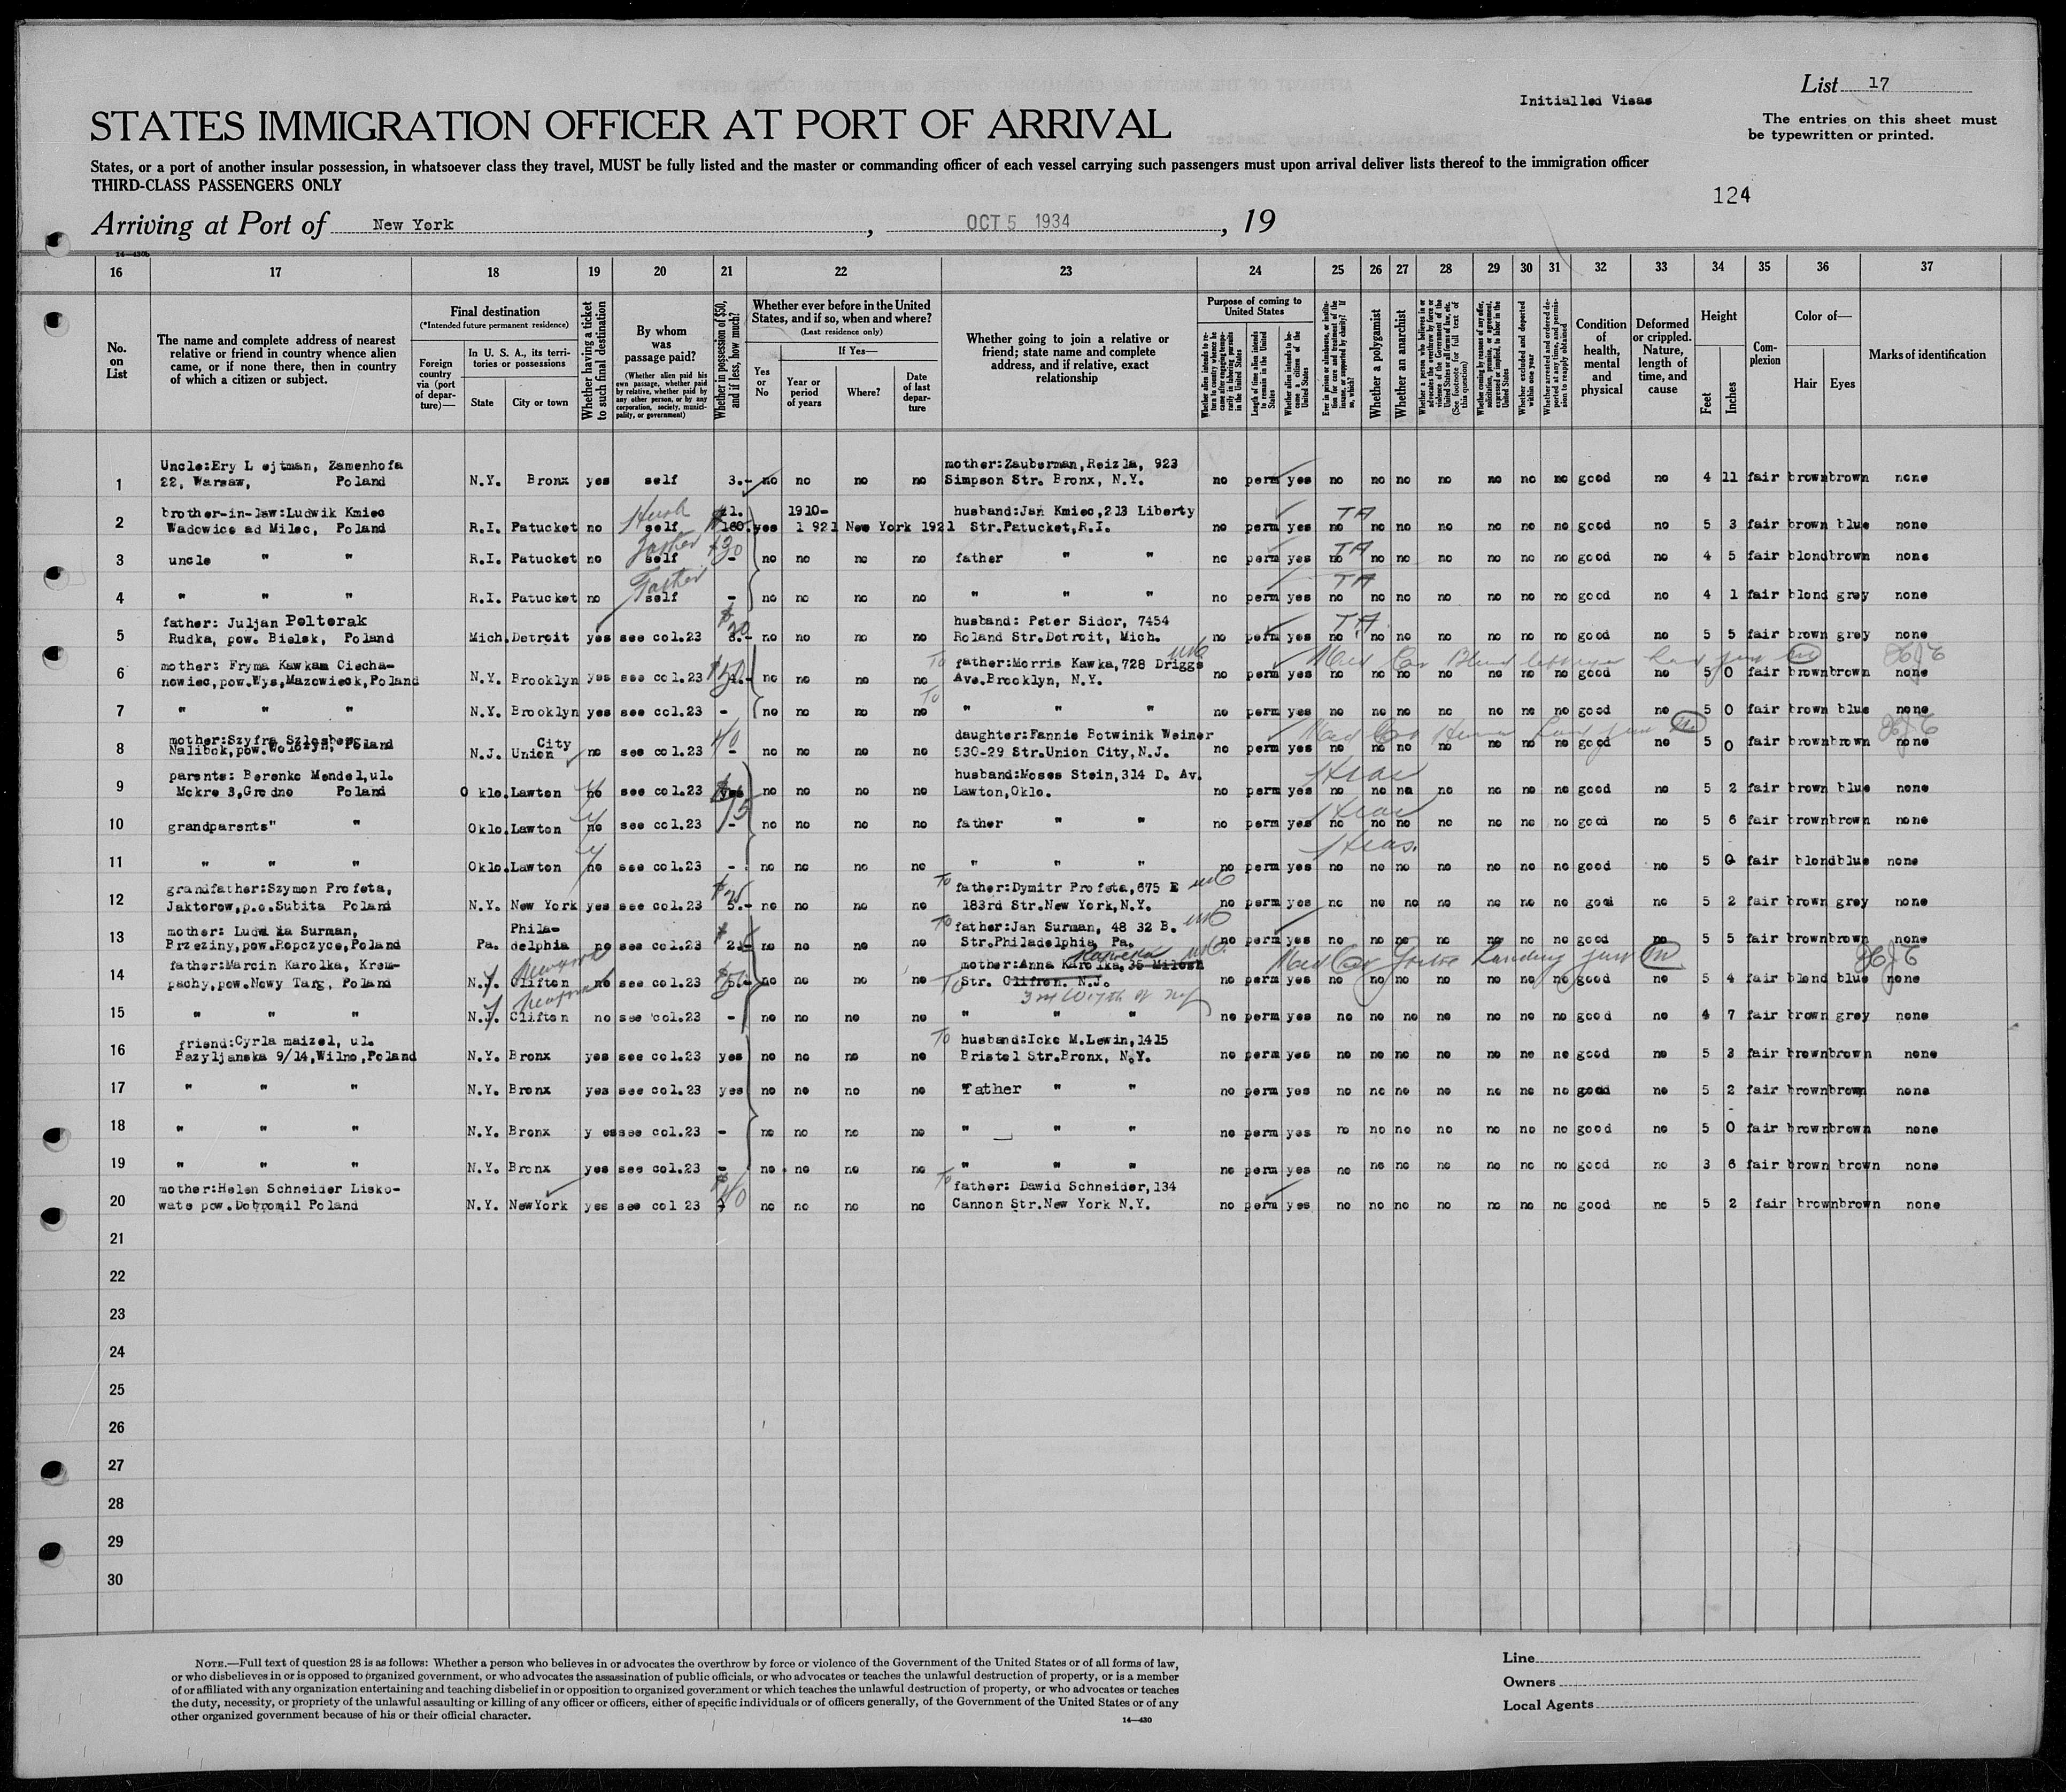 List 17
Initialled Visas
The entries on this sheet must
be typewritten or printed.
STATES IMMIGRATION OFFICER AT PORT OF ARRIVAL
States, or a port of another insular possession, in whatsoever class they travel, MUST be fully listed and the master or commanding officer of each vessel carrying such passengers must upon arrival deliver lists thereof to the immigration officer
THIRD-CLASS PASSENGERS ONLY
124
Arriving at Port of New York, OCT 5 1934, 19
14—430b
16 17 18 19 20 21 22 23 24 25 26 27 28 29 30 31 32 33 34 35 36 37
No. on List
The name and complete address of nearest relative or friend in country whence alien came, or if none there, then in country of which a citizen or subject.
Final destination
(*Intended future permanent residence)
Foreign country via (port of departure)—
In U. S. A., its territories or possessions
State
City or town
Whether having a ticket to such final destination
By whom was passage paid?
(Whether alien paid his own passage, whether paid by relative, whether paid by any other person, or by any corporation, society, municipality, or government)
Whether in possession of $50, and if less, how much?
Whether ever before in the United States, and if so, when and where?
(Last residence only)
Yes or No
If Yes—
Year or period of years
Where?
Date of last departure
Whether going to join a relative or friend; state name and complete address, and if relative, exact relationship
Purpose of coming to United States
Whether alien intends to return to country whence he came after engaging temporarily in laboring pursuits in the United States
Length of time alien intends to remain in the United States
Whether alien intends to become a citizen of the United States
Ever in prison or almshouse, or institution for care and treatment of the insane, or supported by charity? If so, which?
Whether a polygamist
Whether an anarchist
Whether a person who believes in or advocates the overthrow by force or violence of the Government of the United States or all forms of law, etc. (See footnote for full text of this question)
Whether coming by reasons of any offer, solicitation, promise, or agreement, expressed or implied, to labor in the United States
Whether excluded and deported within one year
Whether arrested and ordered deported at any time, and permission to reapply obtained
Condition of health, mental and physical
Deformed or crippled. Nature, length of time, and cause
Height
Feet
Inches
Complexion
Color of—
Hair
Eyes
Marks of identification
Uncle:Ery L ejtman, Zamenhofa mother:Zauberman,Reizla, 923
1 22, Warsaw, Poland N.Y. Bronx yes self 3.- no no no no Simpson Str. Bronx, N.Y. no perm yes no no no no no no no good no 4 11 fair brown brown none
brother-in-law:Ludwik Kmiec Husb 1910- husband:Jan Kmiec,213 Liberty TA
2 Wadowice ad Milec, Poland R.I. Patucket no self yes 1 921 New York 1921 Str.Patucket,R.I. no perm yes no no no no no no no good no 5 3 fair brown blue none
Father $30 TA
3 uncle " " R.I. Patucket no self - no no no no father " " no perm yes no no no no no no no good no 4 5 fair blond brown none
Father TA
4 " " " R.I. Patucket no self - no no no no " " " no perm yes no no no no no no no good no 4 1 fair blond grey none
father: Juljan Poltorak $20 husband: Peter Sidor, 7454 TA
5 Rudka, pow. Bielsk, Poland Mich. Detroit yes see col.23 8.- no no no no Roland Str.Detroit, Mich. no perm yes no no no no no no no good no 5 5 fair brown grey none
mother: Fryma Kawkam Ciecha- $50 To father:Morris Kawka,728 Driggs
6 nowiec,pow.Wys,Mazowieck,Poland N.Y. Brooklyn yes see col.23 no no no no Ave.Brooklyn, N.Y. no perm yes no no no no no no no good no 5 0 fair brown brown none
To
7 " " " N.Y. Brooklyn yes see col.23 - no no no no " " " no perm yes no no no no no no no good no 5 0 fair brown blue none
mother:Szyfra Szlosberg City 40 daughter:Fannie Botwinik Weiner
8 Nalibok,pow.Wolozyn, Poland N.J. Union no see col.23 - no no no no 530-29 Str.Union City,N.J. no perm yes no no no no no no no good no 5 0 fair brown brown none
parents: Berenko Mendel,ul. husband:Moses Stein,314 D. Av. Hias
9 Mokre 3,Grodno Poland O klo. Lawton no see col.23 yes no no no no Lawton,Oklo. no perm yes no no no no no no no good no 5 2 fair brown blue none
Hias
10 grandparents" " Oklo. Lawton no see col.23 - no no no no father " " no perm yes no no no no no no no good no 5 6 fair brown brown none
Hias.
11 " " " Oklo. Lawton no see col.23 - no no no no " " " no perm yes no no no no no no no good no 5 0 fair blond blue none
grandfather:Szymon Profeta, To father:Dymitr Profeta,675 E
12 Jaktorow,p.o.Subita Poland N.Y. New York yes see col.23 5.- no no no no 183rd Str.New York,N.Y. no perm yes no no no no no no no good no 5 2 fair brown grey none
mother: Ludwi ka Surman, Phila- To father:Jan Surman, 48 32 B.
13 Brzeziny,pow.Ropczyce,Poland Pa. delphia no see col.23 no no no no Str.Philadelphia, Pa. no perm yes no no no no no no no good no 5 5 fair brown brown none
father:Marcin Karolka, Krem- New York mother:Anna Karolka,35 Milosh
14 pachy,pow.Nowy Targ, Poland N.J. Clifton no see col.23 no no no no To Str. Clifron. N.J. no perm yes no no no no no no no good no 5 4 fair blond blue none
15 " " " N.J. Clifton no see col.23 - no no no no " " " no perm yes no no no no no no no good no 4 7 fair brown grey none
friend:Cyrla maizel, ul. To husband:Icko M.Lewin,1415
16 Bazyljanska 9/14,Wilno,Poland N.Y. Bronx yes see col.23 yes no no no no Bristel Str.Bronx, N.Y. no perm yes no no no no no no no good no 5 3 fair brown brown none
17 " " " N.Y. Bronx yes see col.23 yes no no no no Father " " no perm yes no no no no no no no good no 5 2 fair brown brown none
18 " " " N.Y. Bronx y es see col.23 - no no no no " " " no perm yes no no no no no no no good no 5 0 fair brown brown none
19 " " " N.Y. Bronx yes see col.23 - no no no no " " " no perm yes no no no no no no no good no 3 6 fair brown brown none
mother:Helen Schneider Lisko- $40 To father: Dawid Schneider,134
20 wate pow.Dobromil Poland N.Y. NewYork yes see col 23 no no no no Cannon Str.New York N.Y. no perm yes no no no no no no no good no 5 2 fair brown brown none
21
22
23
24
25
26
27
28
29
30
NOTE.—Full text of question 28 is as follows: Whether a person who believes in or advocates the overthrow by force or violence of the Government of the United States or of all forms of law,
or who disbelieves in or is opposed to organized government, or who advocates the assassination of public officials, or who advocates or teaches the unlawful destruction of property, or is a member
of or affiliated with any organization entertaining and teaching disbelief in or opposition to organized government or which teaches the unlawful destruction of property, or who advocates or teaches
the duty, necessity, or propriety of the unlawful assaulting or killing of any officer or officers, either of specific individuals or of officers generally, of the Government of the United States or of any
other organized government because of his or their official character.
14—430
Line
Owners
Local Agents